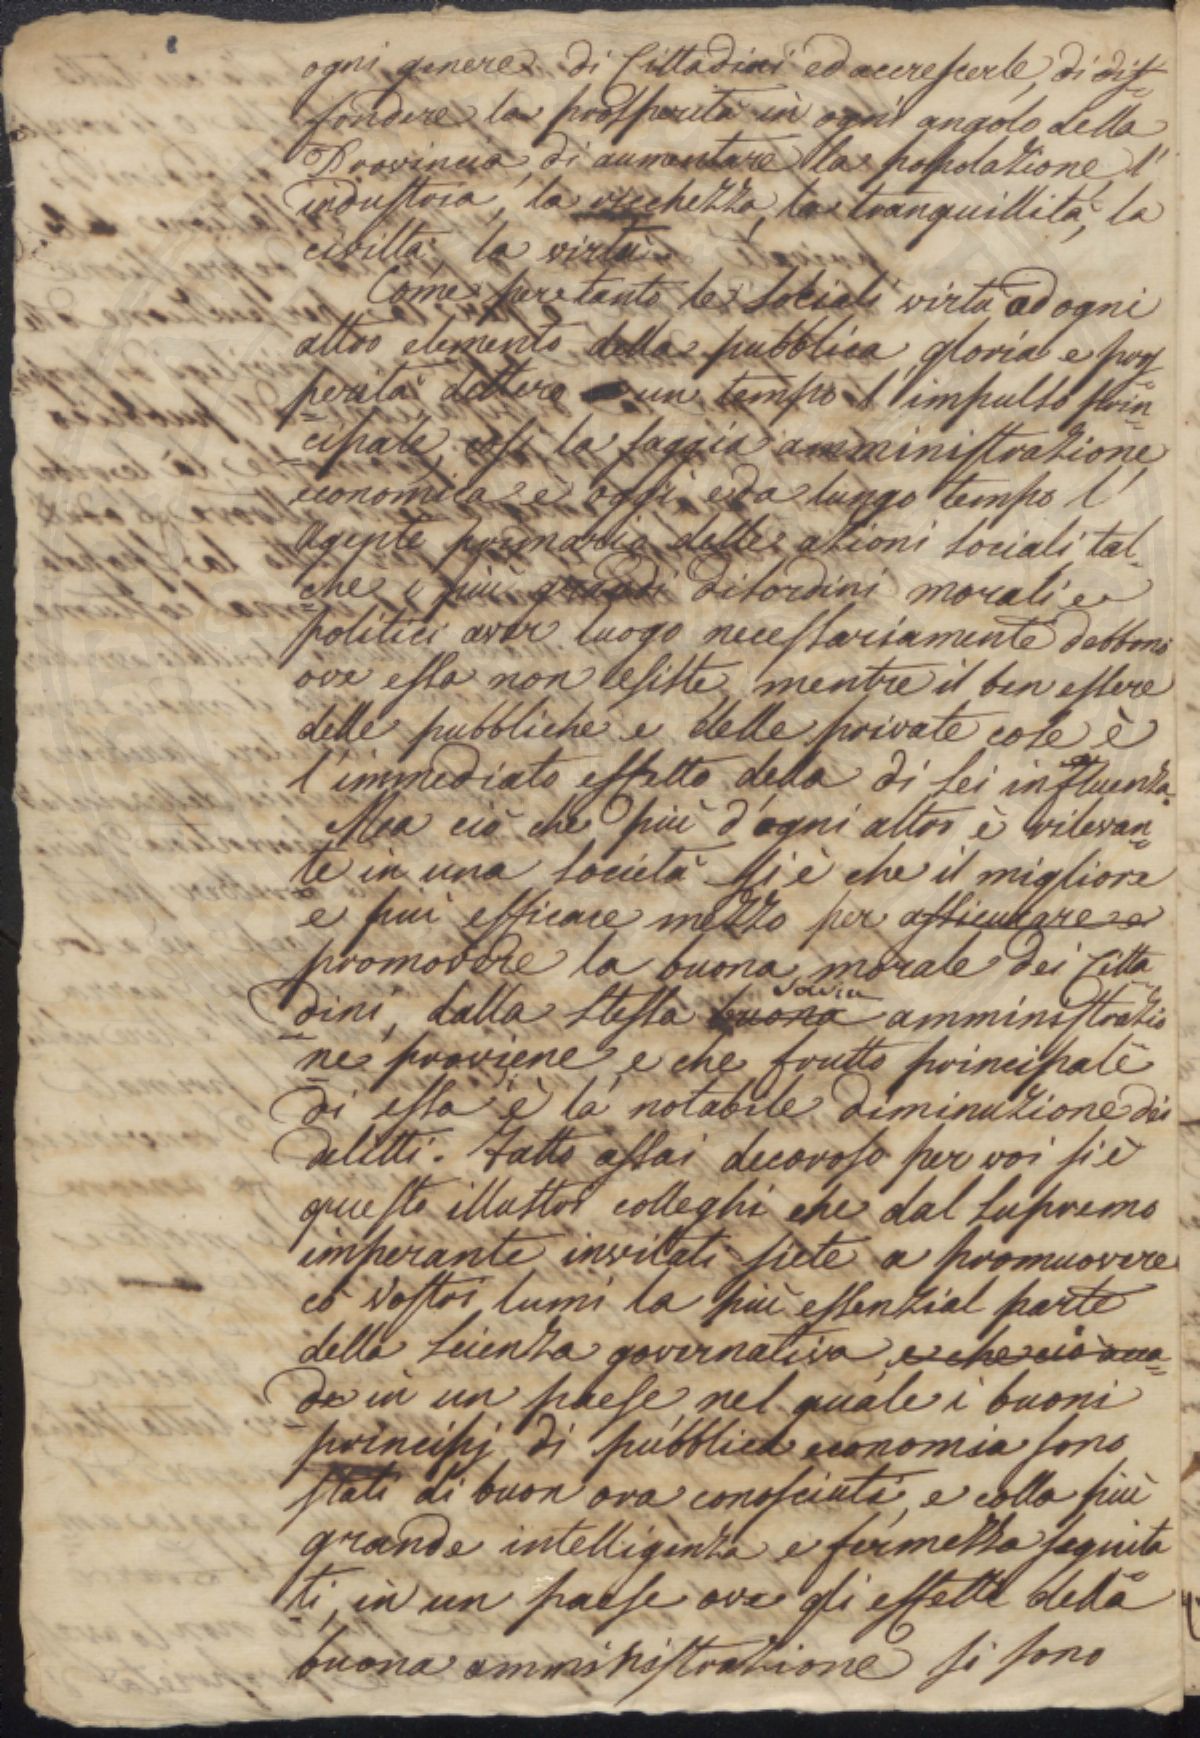 ogni genere di Cittadini ed accrescerle, di dif=
fondere la prosperità in ogni angolo della
Provincia, di aumentare la popolazione, l'
industria, la ricchezza, la tranquillità, la
civiltà, la virtù.
Come pertanto le sociali virtù ed ogni
altro elemento della pubblica gloria e pros
=perità dettero un tempo l'impulso prin=
=cipale, così la saggia amministrazione
economica è oggi, e da lungo tempo l'
Agente primario delle azioni sociali tal=
=che i più grandi disordini morali e
politici aver luogo necessariamente debbono
ove essa non esiste, mentre il ben essere
delle pubbliche e delle private cose è
l'immediato effetto della di lei influenza.
Ma ciò che più d'ogni altro è rilevan=
te in una società si è che il migliore
e più efficace mezzo per assicurare e
promovere la buona morale dei Citta
=dini, dalla stessa buona savia amministrazio
=ne proviene, e che frutto principale
di essa è la notabile diminuzione dei
delitti. Fatto assai decoroso per voi si è
questo illustri colleghi che dal supremo
imperante invitati siete a promuovere
co' vostri lumi la più essenzial parte
della scienza governativa e che ciò acca=
=de in un paese nel quale i buoni
principj di pubblica economia sono
stati di buon ora conosciuti, e colla più
grande intelligenza e fermezza seguita
=ti, in un paese ove gli effetti della
buona amministrazione si sono